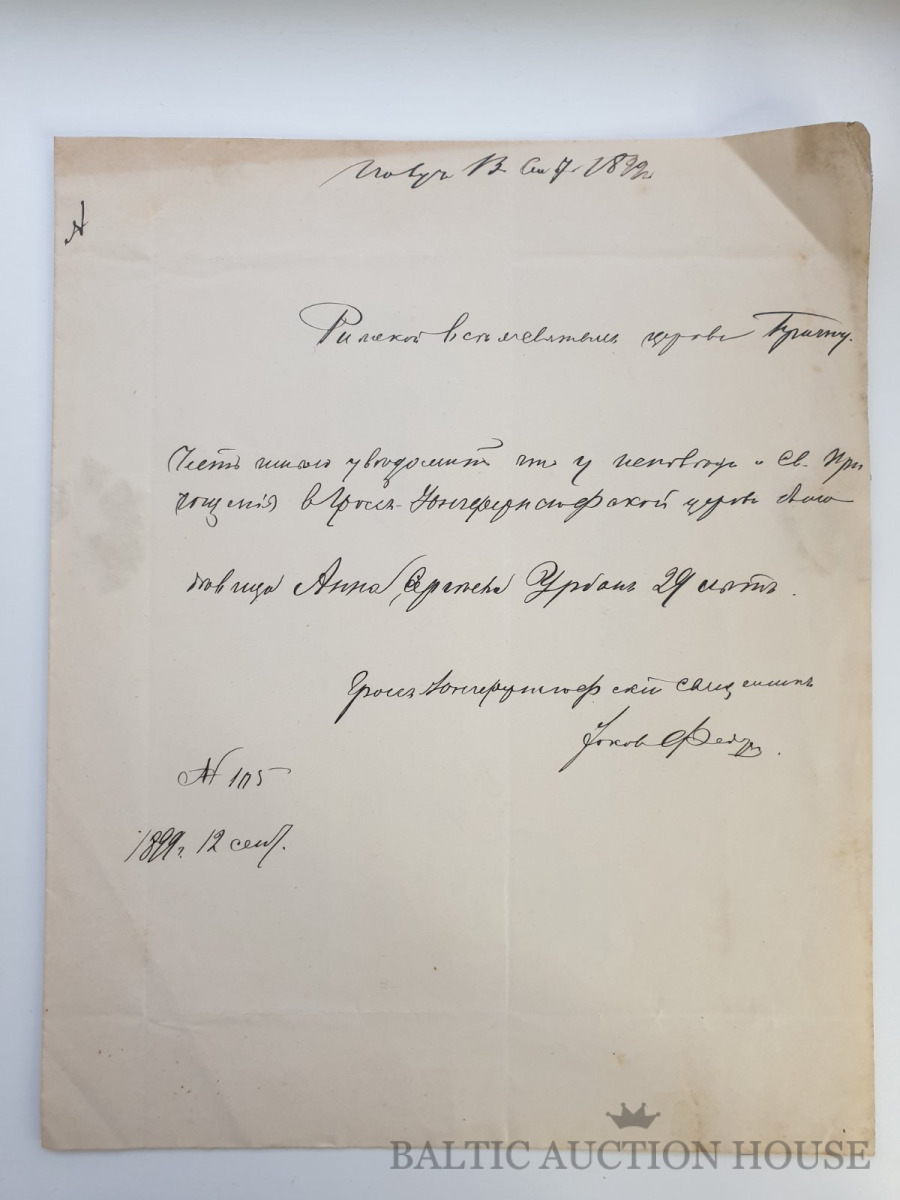 1899 г.
А
Рижской Всѣхсвятской церкви Причту.
Честь имѣю увѣдомить что у исповѣди и Св. При
чащенія въ Гросъ-Юнгфернгофской церкви была
дѣвица Анна Урбанъ 29 лѣтъ.
Гросъ Юнгфернгофскій священникъ
Яковъ
№ 105
1899 г. 12 сент.
BALTIC AUCTION HOUSE